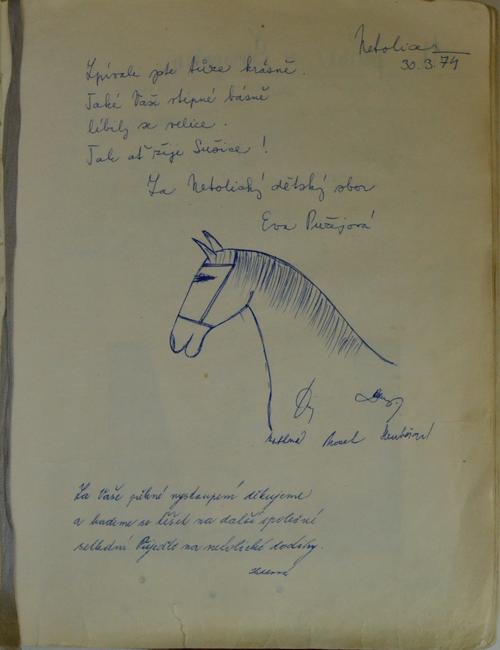 Netolice
30.3.74
Zpívale jste tůze krásně.
Také Vaše vtipné básně
líbily se velice.
Tak ať žije Sušice!
Za Netolický dětský sbor
Eva
Za Vaše pěkné vystoupení děkujeme
a budeme se těšit na další společné
setkání Přijeďte na netolické